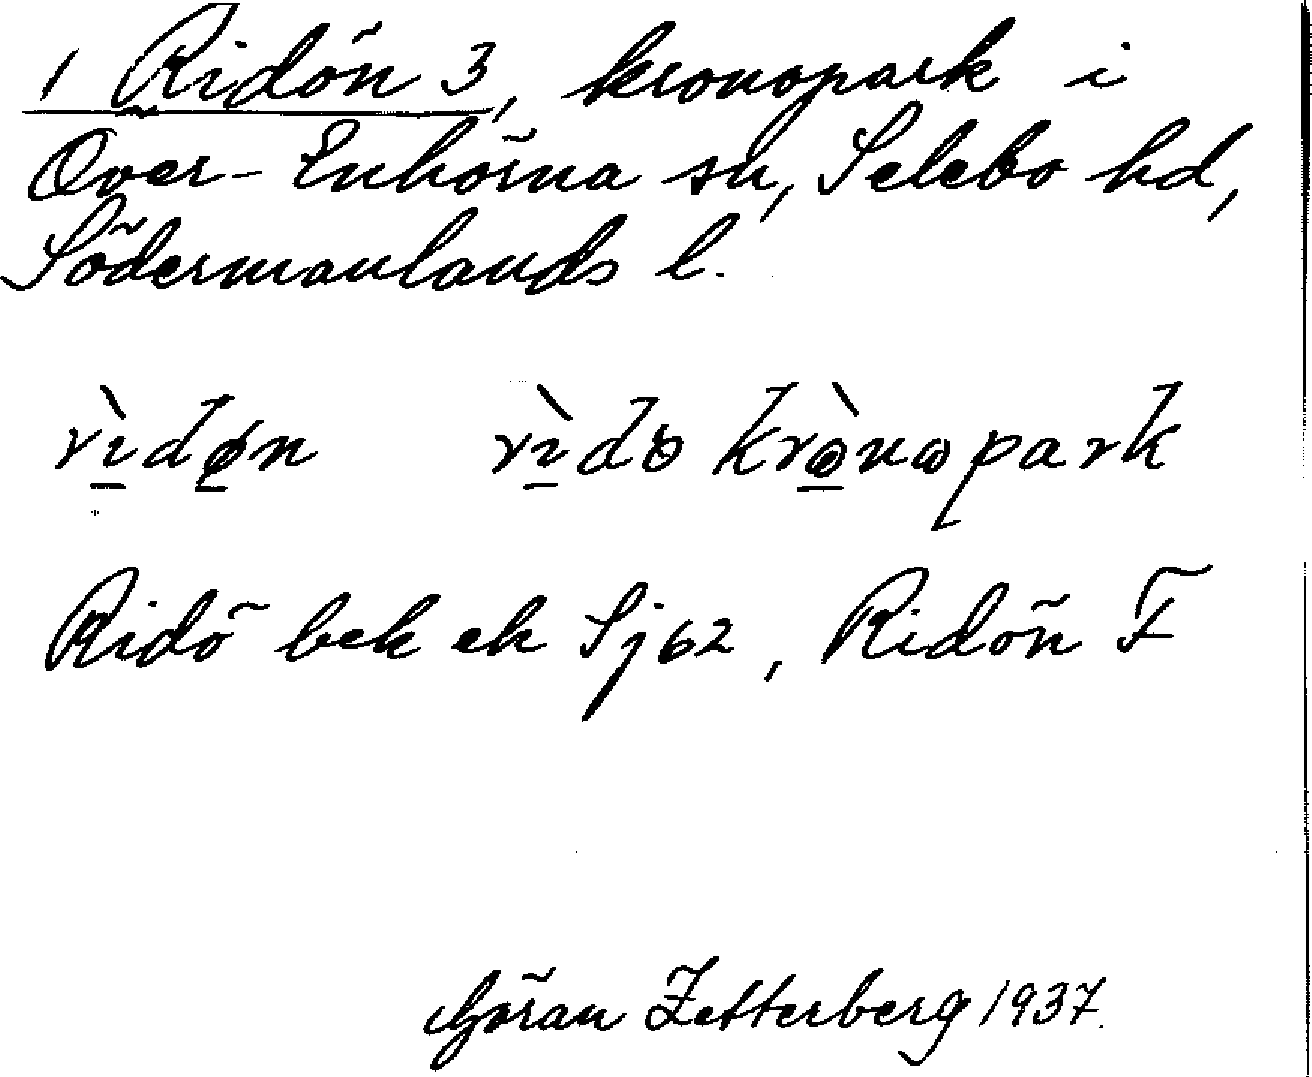 1 Ridön 3, kronopark i
Över-Enhörna sn, Selebo hd,
Södermanlands l.
rìdøn rìdö krònopark
Ridö bek ek Sj62, Ridön F
Göran Zetterberg 1937.